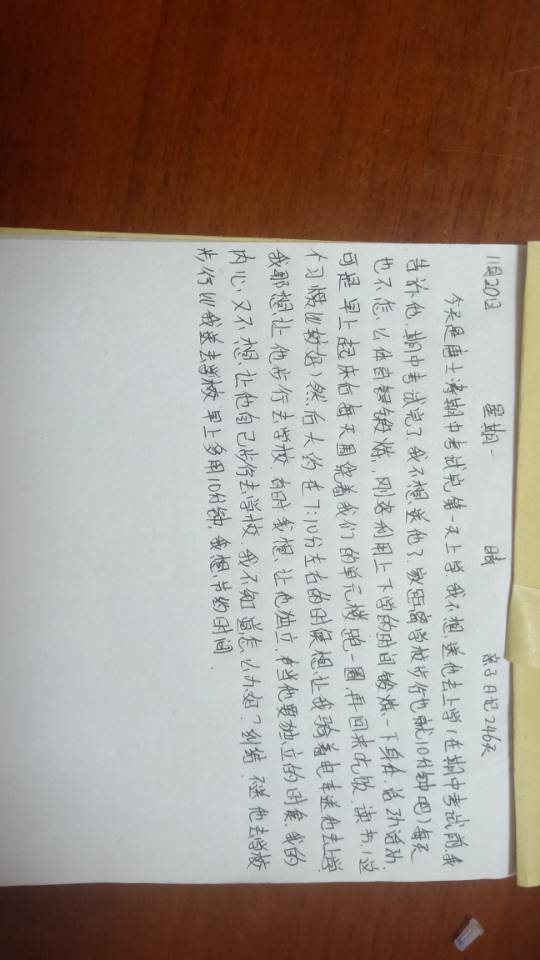 11月20日 星期一 晴 亲子日记246天
今天是唐士涛期中考试完第一天上学.我不想送他去上学(在期中考试前.我
告诉他.期中考试完了.我不想送他了.家距离学校步行也就10分钟吧)每天
也不怎么体育锻炼,刚好利用上下学的时间锻炼一下身体.活动活动.
可是早上起床后每天围绕着我们的单元楼跑一圈.再回来吃饭.读书.(这
个习惯比较好)然后大约在7:10分左右的时候想让我骑着电车送他去上学.
我那想让他步行去学校.有时我想让他独立.在当他要独立的时候.我的
内心又不想让他自己步行去学校.我不知道怎么办好?纠结.不送他去学校
步行比我送去学校早上多用10分钟,我想节约时间.